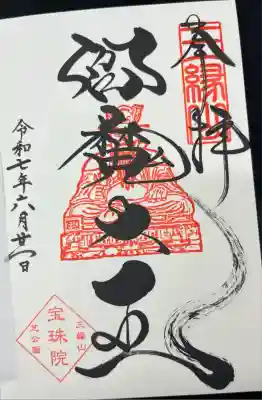 奉拝
閻魔大王
令和七年六月廿一日
三縁山
宝珠院
芝公園